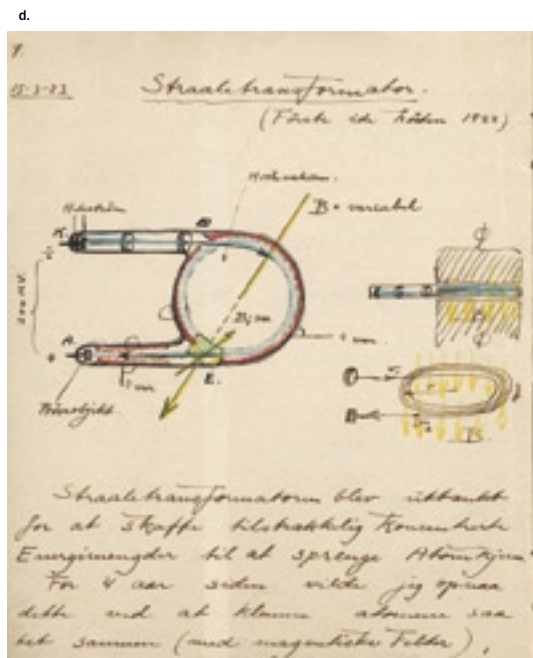 d.
9.
15-3-23
Straaletransformator.
(Første ide høsten 1922)
Høchvakum.
B = variabel
K.
A.
E.
B
Φ
Φ
B
Straaletransformatoren blev uttænkt
for at skaffe tilstrækkelig koncentrerte
Energimengder til at sprenge Atomkjerner
For 4 aar siden vilde jeg opnaa
dette ved at klemme atomene saa
tet sammen (med magnetiske Felter).